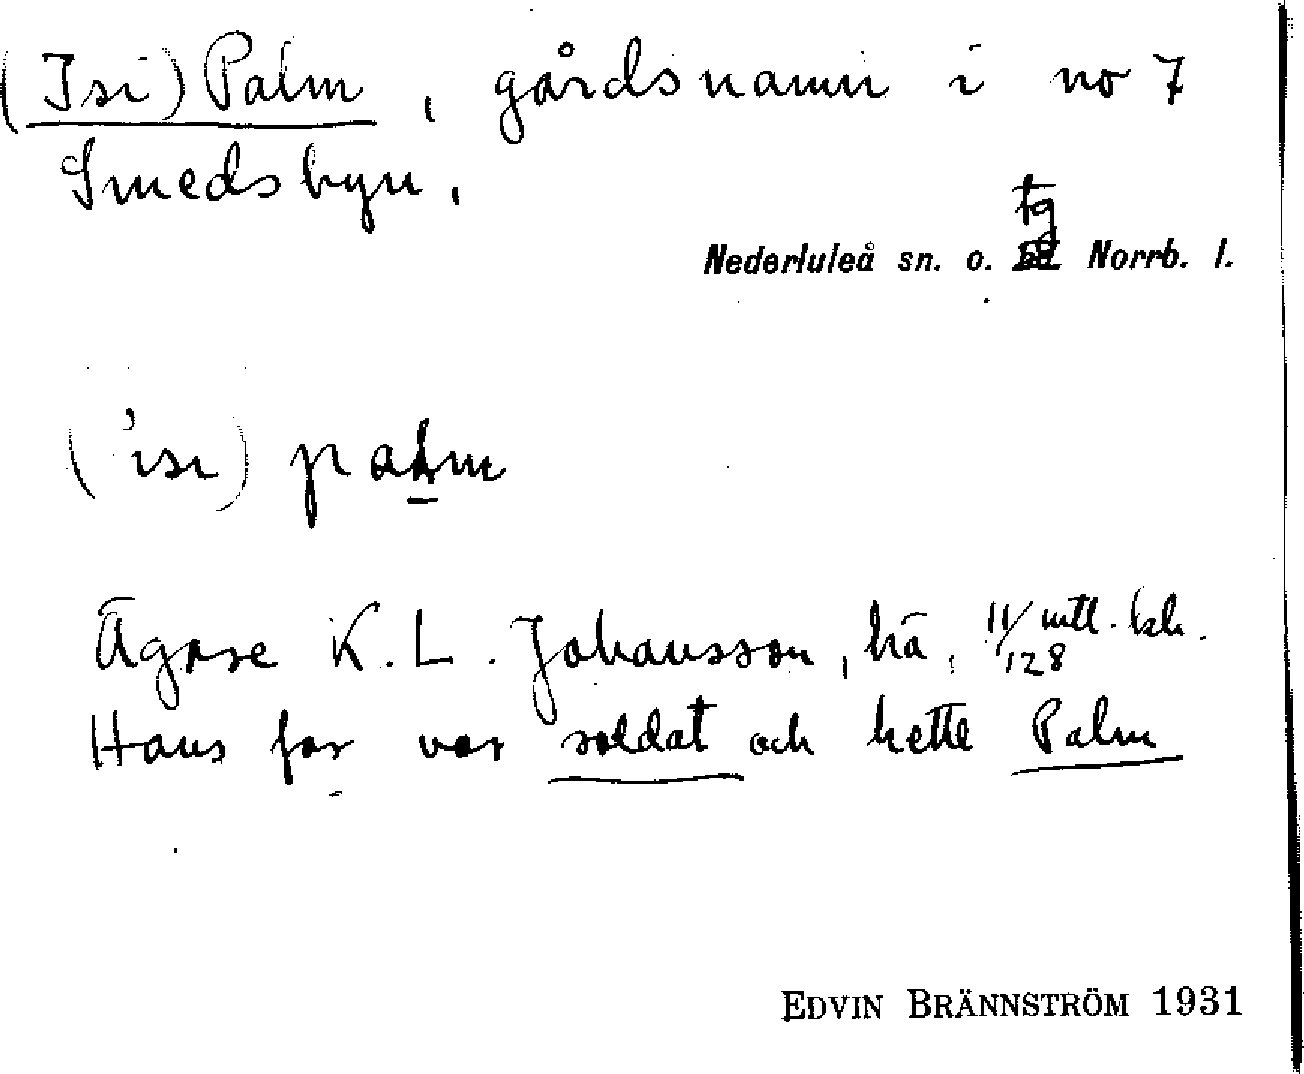 (Isi) Palm, gårdsnamn i no 7
Smedsbyn.
tg
Nederluleå sn. o. Norrb. l.
('isi) palm
Ägare K. L. Johansson, hä, 11/128 mtl. kr.
Hans far var soldat och hette Palm
EDVIN BRÄNNSTRÖM 1931